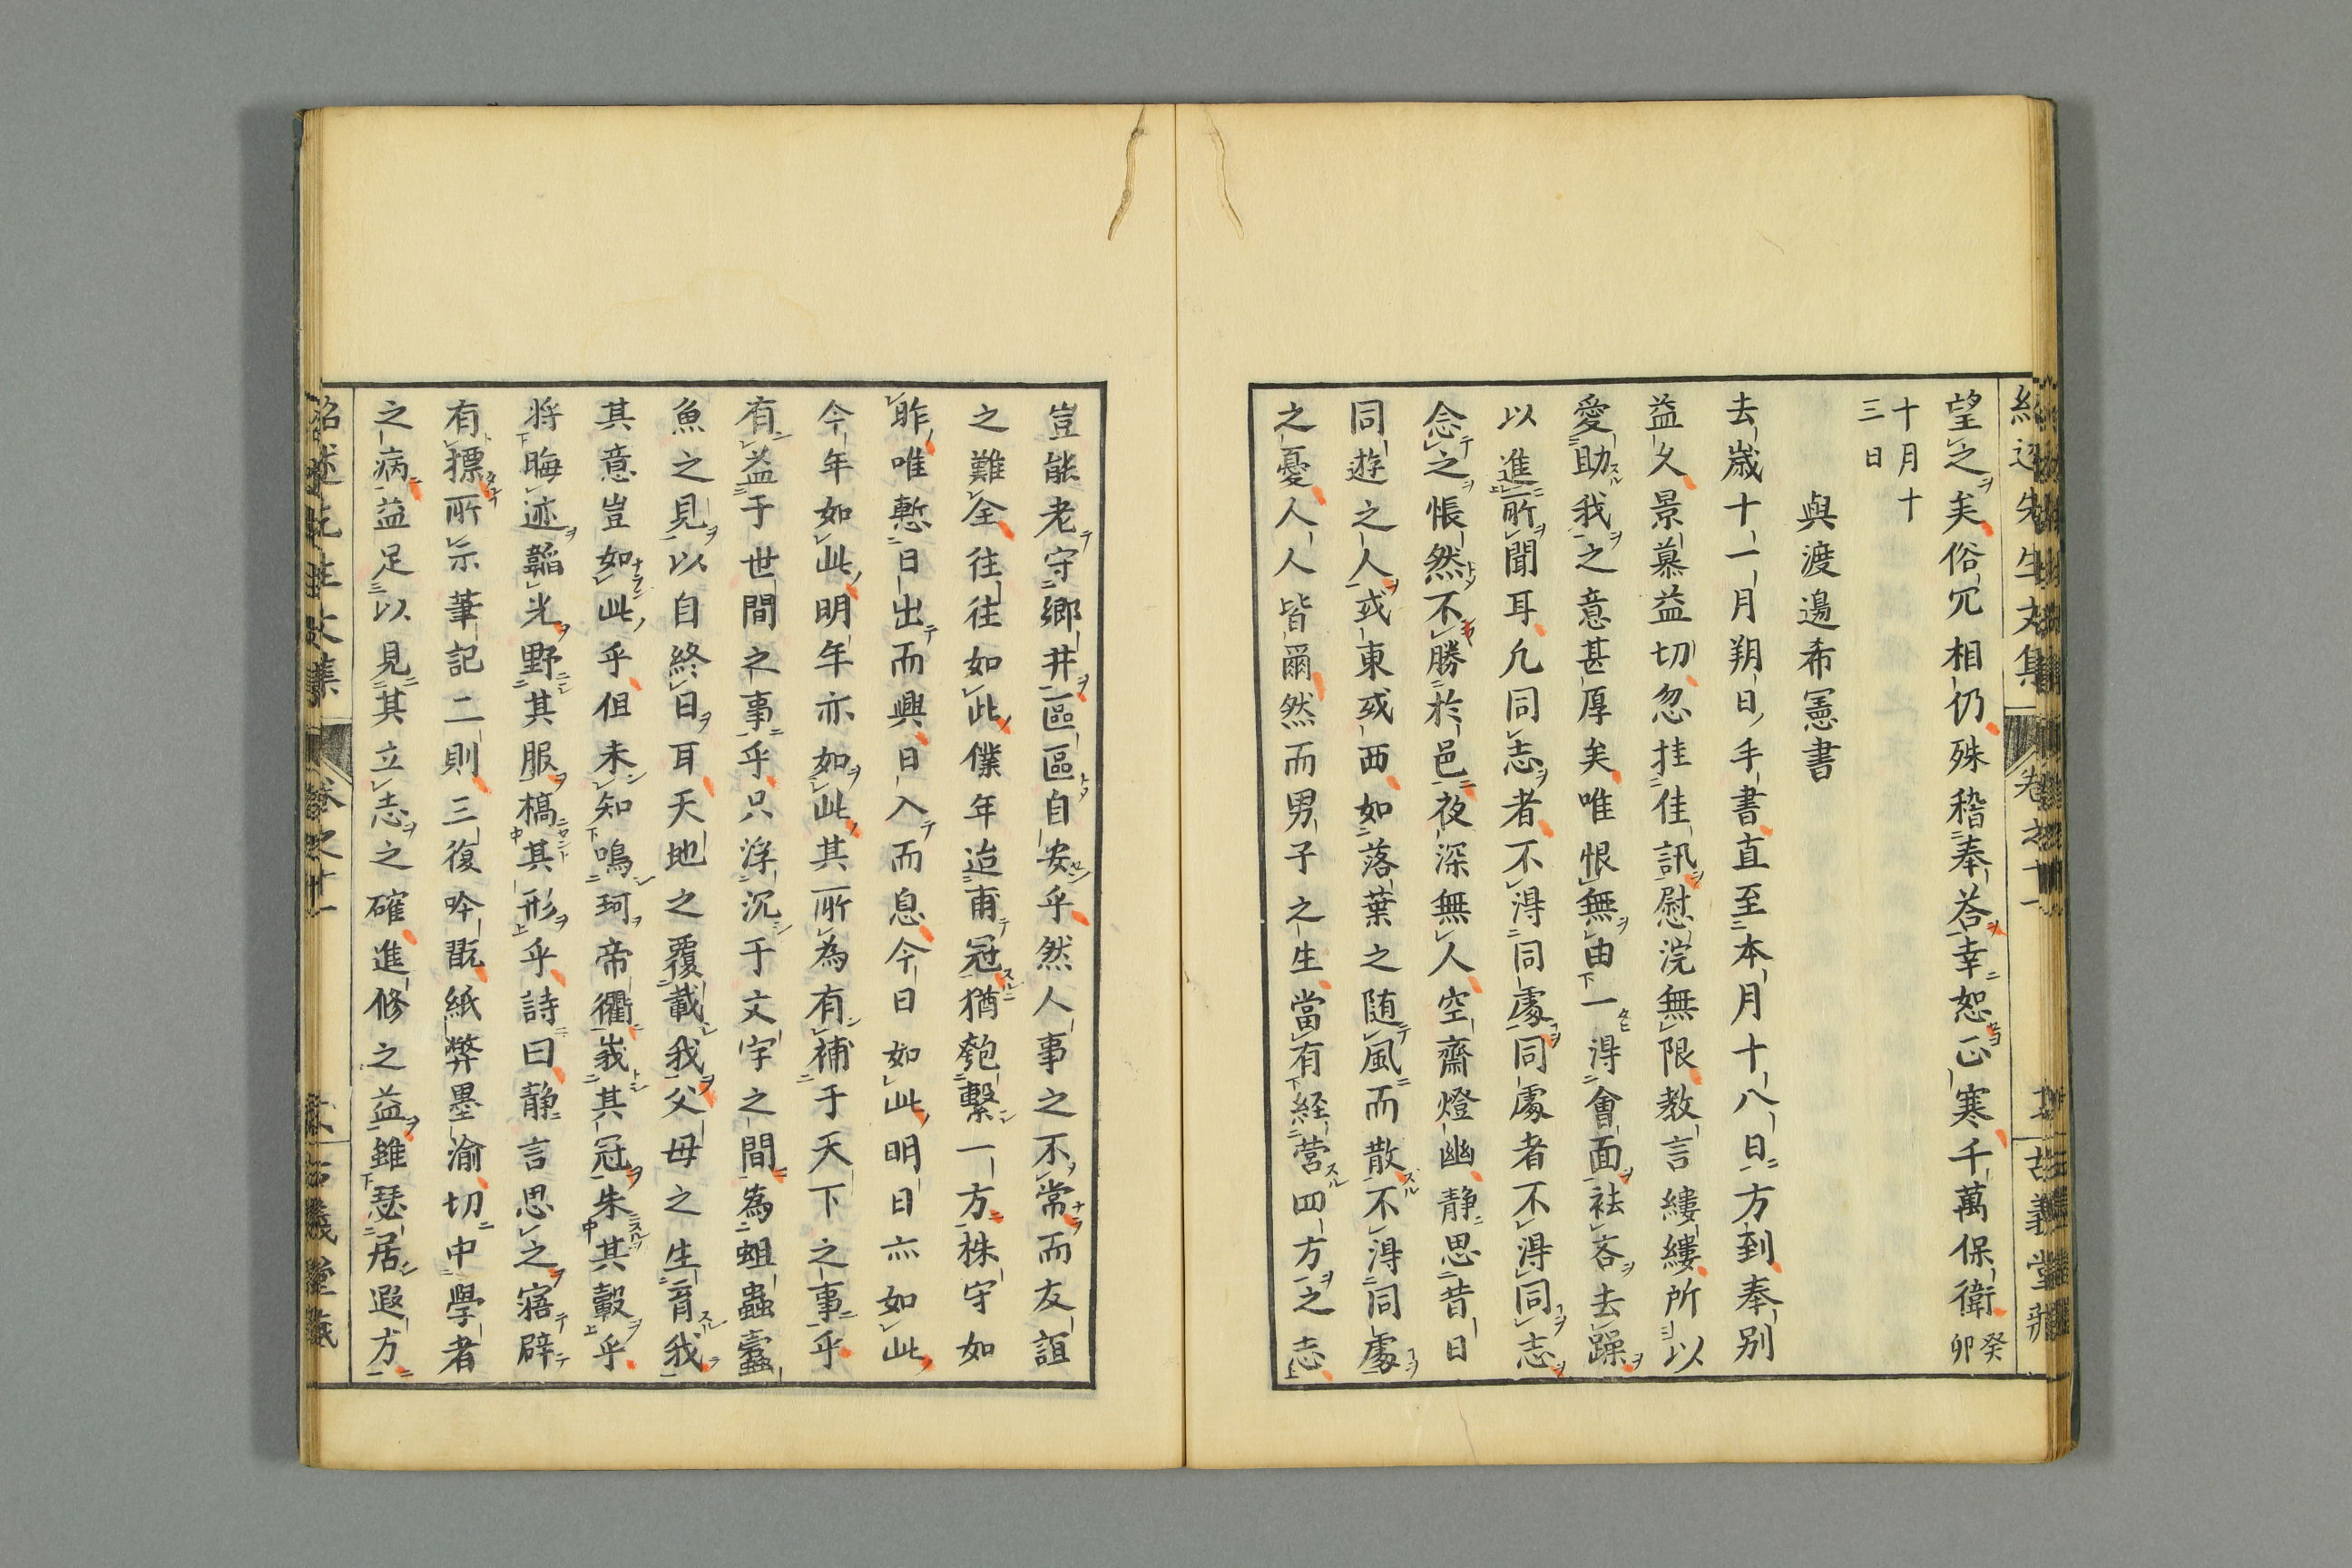 望之矣俗冗相仍殊稽奉荅幸恕正寒千萬保衛癸卯
十月十
三日
與渡邊希憲書
去歳十一月朔日手書直至本月十八日方到奉別
益久景慕益切忽挂佳訊慰浣無限教言縷縷所以
愛助我之意甚厚矣唯恨無由一得會面袪吝去躁
以進所聞耳凢同志者不得同處同處者不得同志
念之悵然不勝於邑夜深無人空齋燈幽静思昔日
同遊之人或東或西如落葉之随風而散不得同處
之憂人人皆爾然而男子之生當有経營四方之志
豈能老守郷井區區自安乎然人事之不常而友誼
之難全往往如此僕年迨甫冠猶匏繫一方株守如
昨唯慙日出而興日入而息今日如此明日亦如此
今年如此明年亦如此其所為有補于天下之事乎
有益于世間之事乎只浮沉于文字之間為蛆蟲蠹
魚之見以自終日耳天地之覆載我父母之生育我
其意豈如此乎但未知鳴珂帝衢峩其冠朱其轂乎
将晦迹韜光野其服槁其形乎詩曰静言思之寤辟
有摽所示筆記二則三復吟翫紙弊墨渝切中學者
之病益足以見其立志之確進修之益雖瑟居遐方